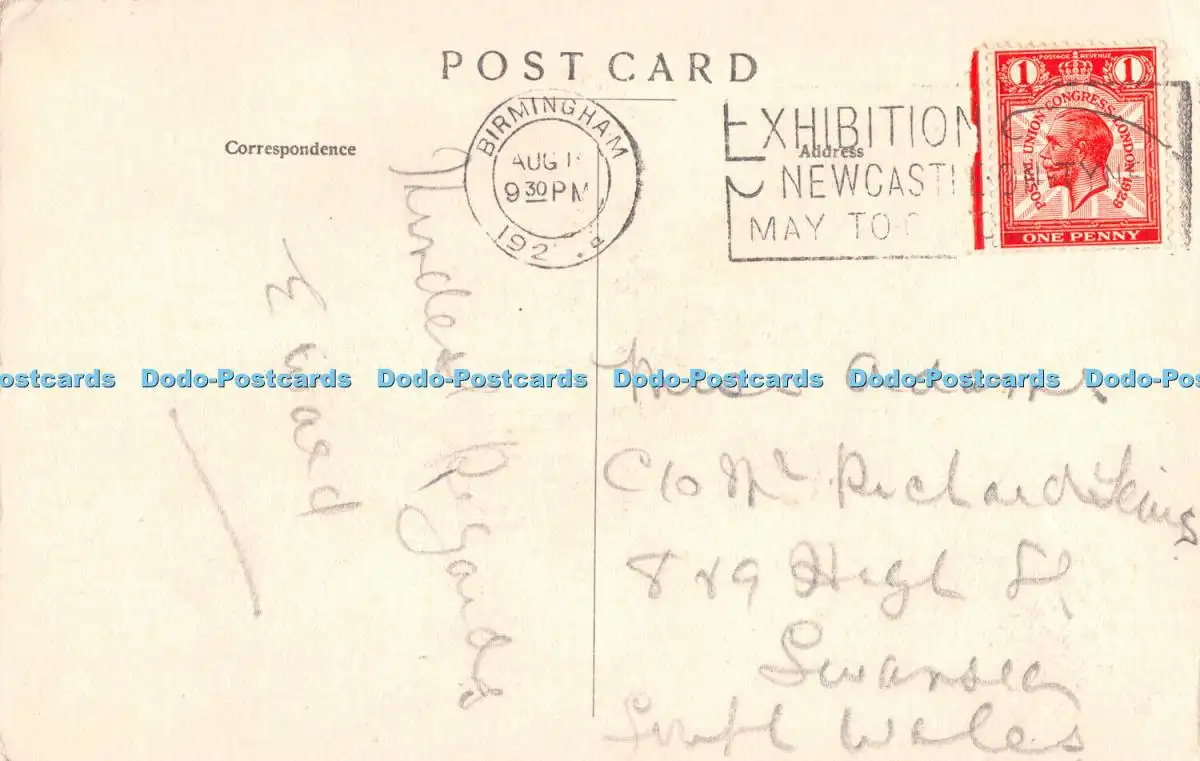 POST CARD
Correspondence
Address
BIRMINGHAM
AUG 1
9 30 PM
192
EXHIBITION
NEWCASTLE-ON-TYNE
MAY TO
1 POSTAGE REVENUE 1
POSTAL UNION CONGRESS LONDON 1929
ONE PENNY
Kindest Regards
E Waed
Miss Adams
C/o Mr Richard Lewis
8 & 9 High St
Swansea
South Wales
ostcards Dodo-Postcards Dodo-Postcards Dodo-Postcards Dodo-Postcards Dodo-Pos